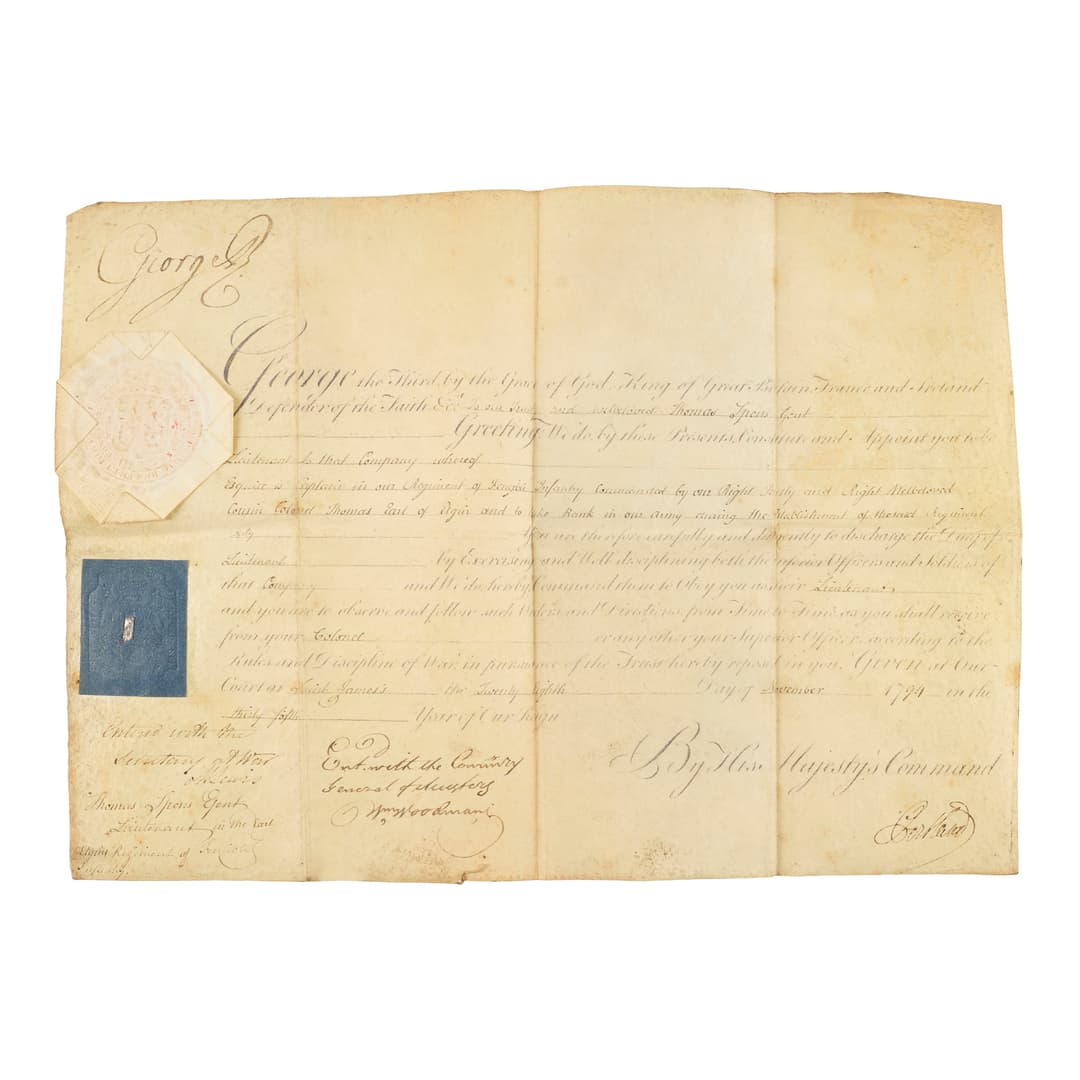 George R
George the Third by the Grace of God, King of Great Britain, France and Ireland
Defender of the Faith &c. To our Trusty and welbeloved Thomas Spens Gent
Greeting, We do by these Presents, Constitute and Appoint you to be
Lieutenant to that Company whereof
Esquire is Captain in our Regiment of Infantry Commanded by our Right Trusty and Right Welbeloved
Cousin Colonel Thomas Earl of Elgin and to take Rank in our Army during the Establishment of the said Regiment
only You are therefore carefully and diligently to discharge the Duty of
Lieutenant by Exercising and Well disciplining both the inferior Officers and Soldiers of
that Company and We do hereby Command them to Obey you as their Lieutenant
and you are to observe and follow such Orders and Directions from Time to Time as you shall receive
from your Colonel or any other your Superior Officer according to the
Rules and Discipline of War, in pursuance of the Trust hereby reposed in you. Given at Our
Court at Saint James's the Twenty Eighth Day of November 1794 in the
thirty fifth Year of Our Reign
By His Majesty's Command
Portland
Entered with the
Secretary at War
MLewis
Thomas Spens Gent
Lieutenant in the Earl
Elgin's Regiment of Fencible
Infantry.
Ent. with the Commry
General of Musters
Wm. Woodman